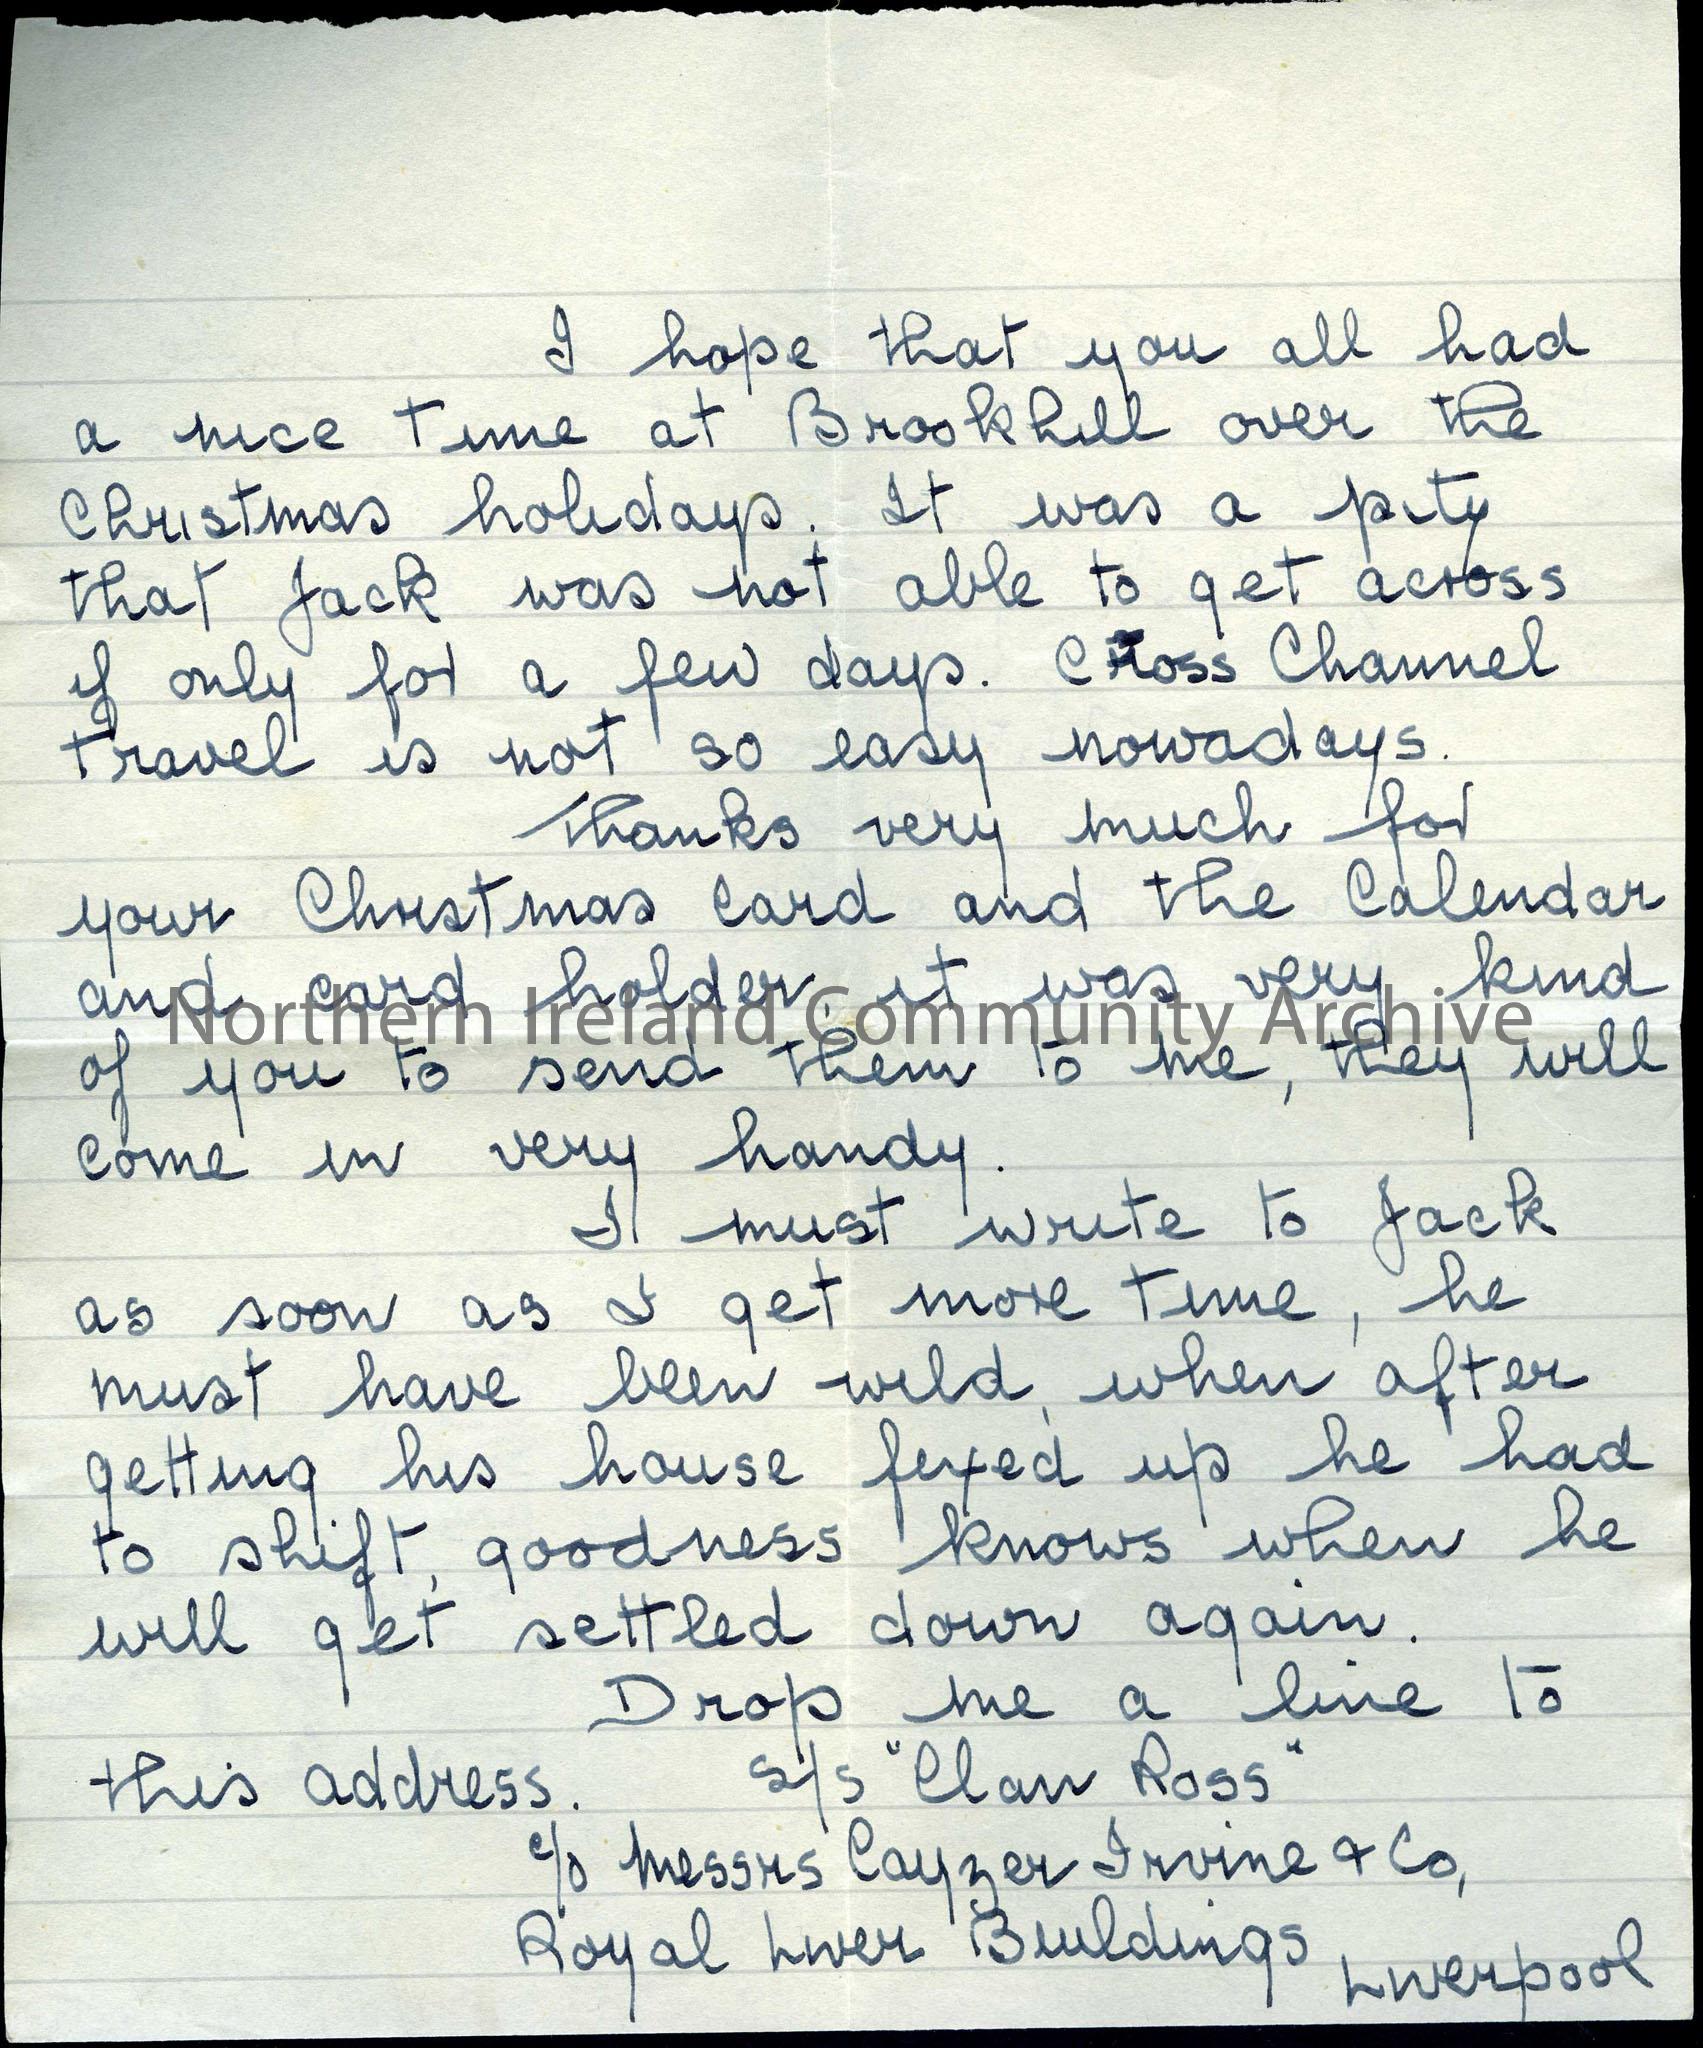 I hope that you all had
a nice time at Brookhill over the
Christmas holidays. It was a pity
that Jack was not able to get across
if only for a few days. Cross Channel
travel is not so easy nowadays.
Thanks very much for
your Christmas card and the Calendar
and card holder, it was very kind
Northern Ireland Community Archive
of you to send them to me, they will
come in very handy.
I must write to Jack
as soon as I get more time, he
must have been wild, when after
getting his house fixed up he had
to shift, goodness knows when he
will get settled down again.
Drop me a line to
this address. S/S "Clan Ross"
c/o Messrs Cayzer Irvine & Co,
Royal Liver Buildings Liverpool